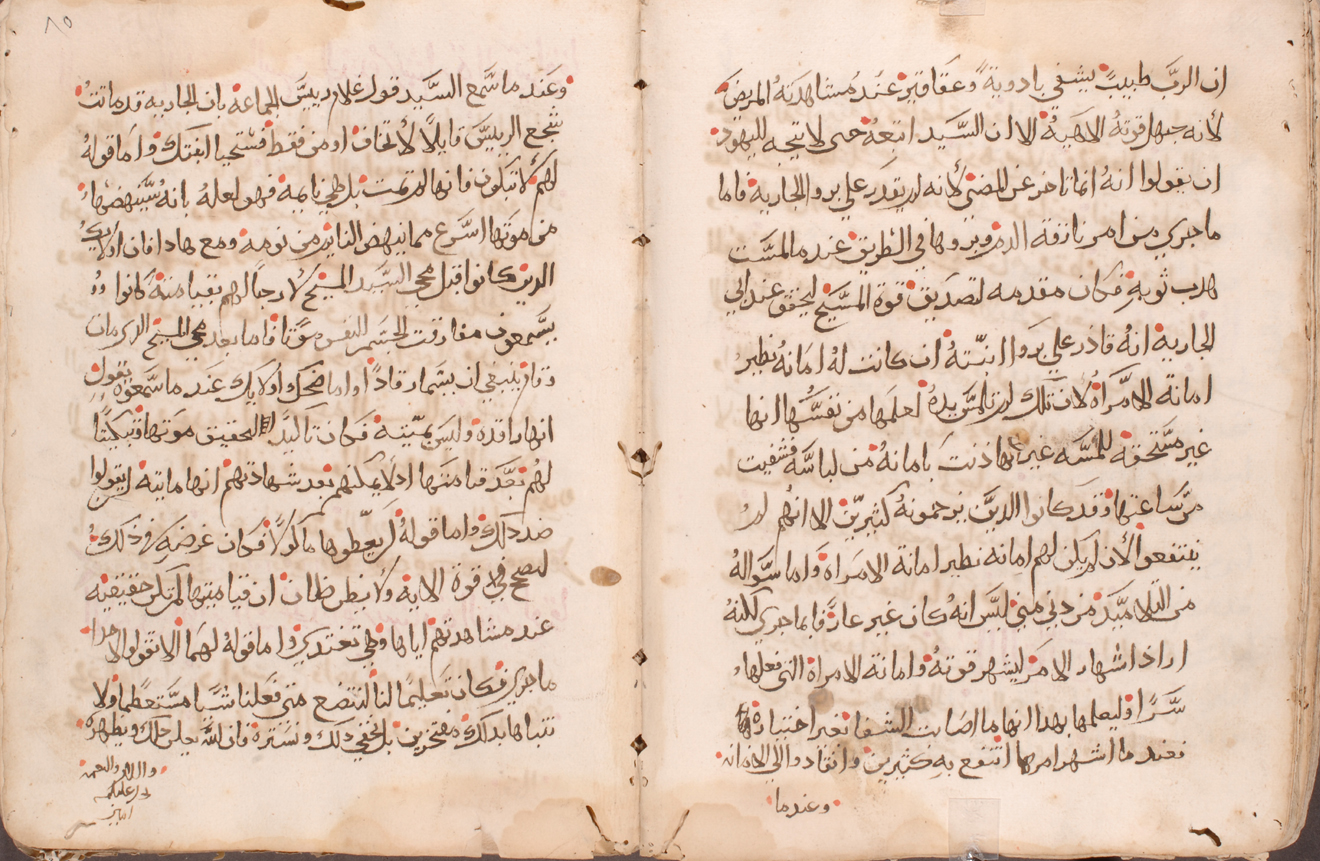 ان الربّ طبيبٌ يشفي بادويةً وعقاقير عند مشاهدته المريض
لانه جهل قوته الالاهيه الا ان السّيد اتبعهُ حتى لا يتجه لليهود
ان يقولوا انهُ انما تاخر عن المضي لانه لم يقدر علي برو الجارية فاما
ما جري من امر نازفة الدم وبروها في الطريق عندما لمسَت
هدب ثوبهِ فكان مقدمه لتصديق قوة المسَيح ليحقق عند ابي
الجاريه انهُ قادر علي بروا ابنتهُ ان كانت لهُ امانهُ نظير
امانة الامراهُ لان تلك لم
اعلمها من نفسُها انها
غير مسَتحقه للمسَه غير انها دنت بامانهُ من لباسَه فشفيت
من سَاعتها وقد كانوا الدين يزحمونهُ كثيرين الا انهُم لم
ينتفعوا لان لم يكن لهم امانه نظير امانة الامراه واما سَوالهُ
من التلاميَد من دني مني ليسَ انه كان غير عارف بما جري لكنهُ
اراد اشهار الامر ليشهر قوتهُ وامانة الامراة التي فعلها
سَرًا وليعلمها بهدا انها ما اصابت الشفا بغير اختياره
فعند ما اشهر امرها انتفع بهِ كثيرين وانقادوا الي الامانه
وعندما
٨٥
وعند ما سَمع السَيد قول غلام رييسَ الجماعة بان الجاريه قد ماتت
شجع الرييسَ قايلاً لا تخاف اومن فقط فسَتحيا ابنتك واما قوله
لهم لا تبكون فانها لم تمت بل هي نايمة فهو لعله بانهُ سَينهضها
من موتها اسَرع مما ينهض النايم من نومه ومع هادا فان اولايك
الدين كانوا قبل مجي السَيد المسَيح لا رجا لهم بقيامتة كانوا
يسَمعون مفارقت الجسَم للنفس موتًا فاما بعد مجي المسَيح
ينبغي ان يسَما رقادًا واما ضحك اولايك عند ما سَمعوه يقول
انها راقده وليسَ بميّته فكان تاكيدًا لتحقيق موتها وتبكيتًا
لهُم بعد قيامتها اد لا يمكنهم بعد شهادتهم انها مايته ان يقولوا
ضد دلك واما قوله ان يعطوها ماكولاً فكان غرضه في دلك
ليصح قوة الاية ولا يظن ظان ان قيامتها لم تكن حقيقيه
عند مشاهدتهم اياها وهي تغتدي واما قوله لهما الا تقولوا لاحدا
ما جري فكان تعليمًا لنا لنتضع متي فعلنا شيا مسَتعظما ولا
نتباها بدلك مفتخرين بل نخفي دلك ونسَتره فان اللّه يعلن دلك ويظهره